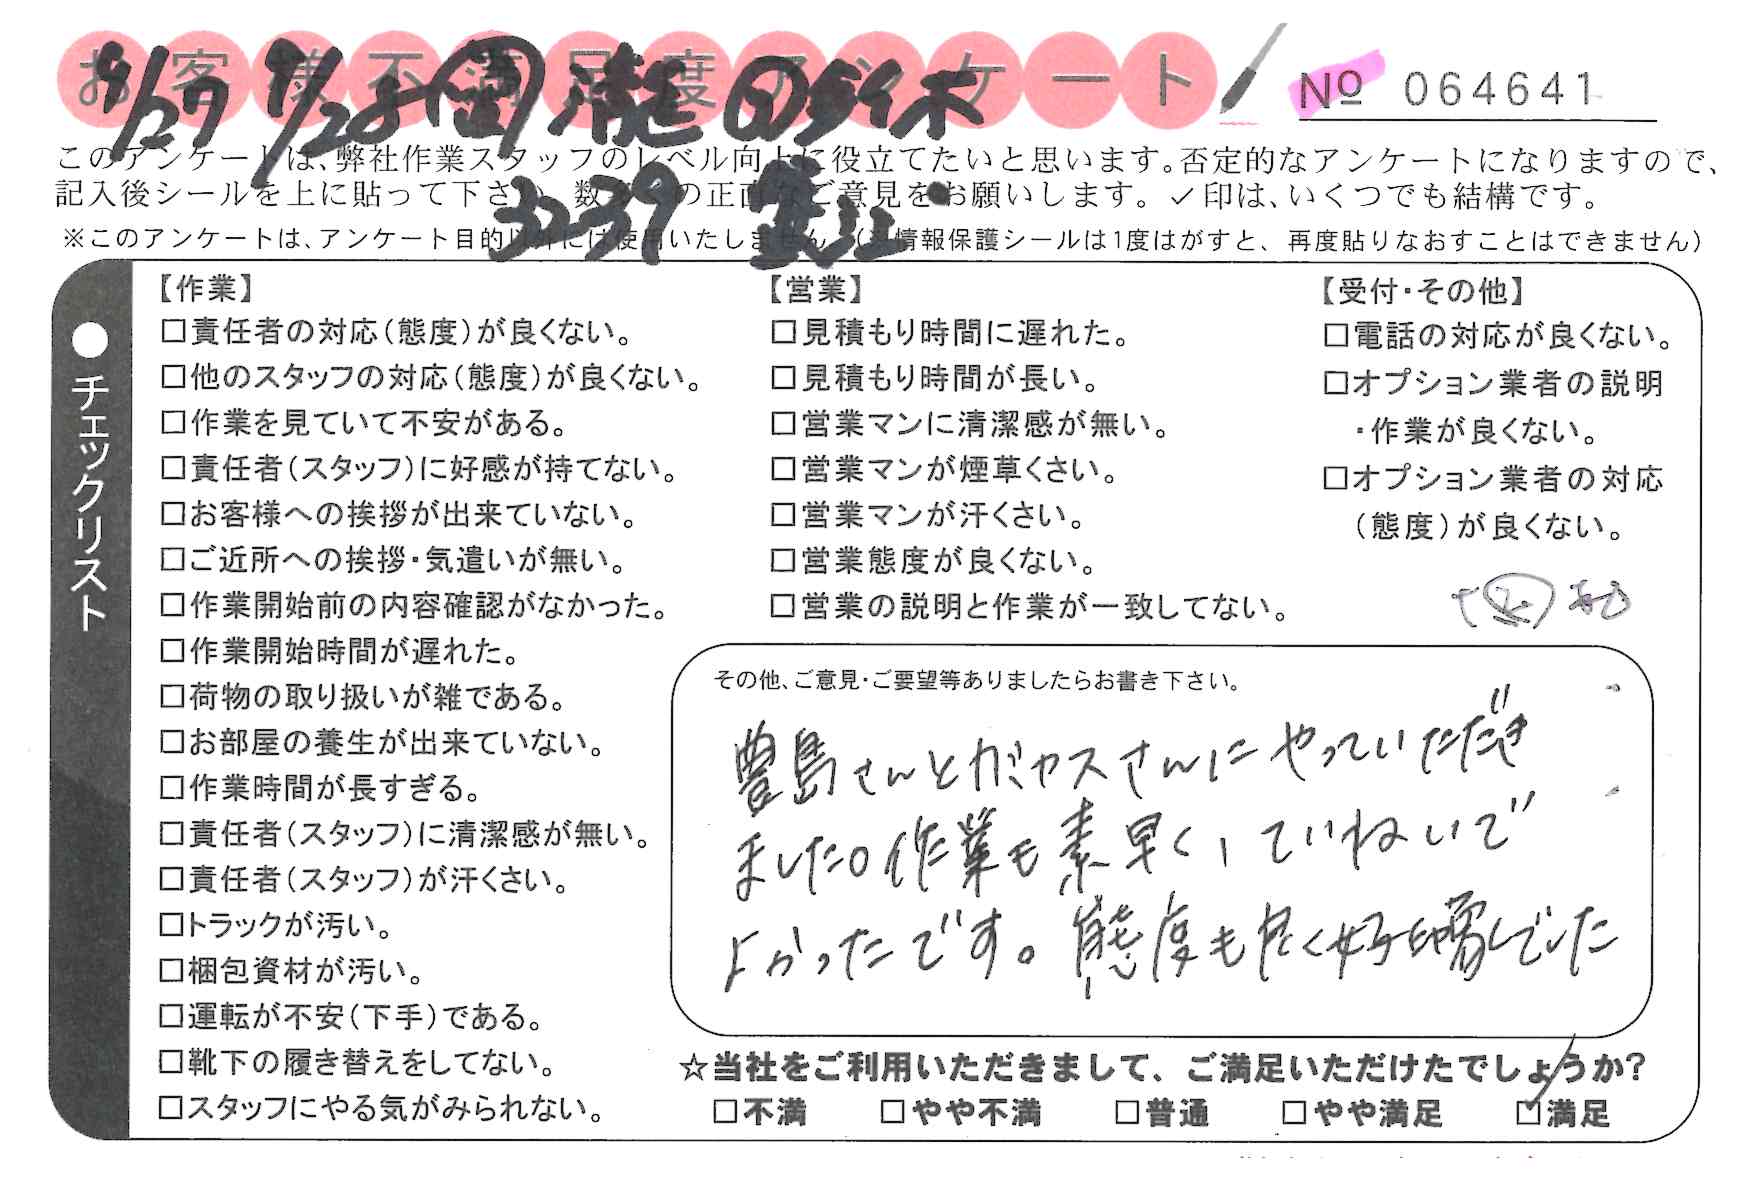 お客様不満足度アンケート
No 064641
9/27 9/28
3239
このアンケートは、弊社作業スタッフのレベル向上に役立てたいと思います。否定的なアンケートになりますので、
記入後シールを上に貼って下さい。数多くの正直なご意見をお願いします。✓印は、いくつでも結構です。
※このアンケートは、アンケート目的以外には使用いたしません。(※情報保護シールは1度はがすと、再度貼りなおすことはできません)
●チェックリスト
【作業】
□責任者の対応(態度)が良くない。
□他のスタッフの対応(態度)が良くない。
□作業を見ていて不安がある。
□責任者(スタッフ)に好感が持てない。
□お客様への挨拶が出来ていない。
□ご近所への挨拶・気遣いが無い。
□作業開始前の内容確認がなかった。
□作業開始時間が遅れた。
□荷物の取り扱いが雑である。
□お部屋の養生が出来ていない。
□作業時間が長すぎる。
□責任者(スタッフ)に清潔感が無い。
□責任者(スタッフ)が汗くさい。
□トラックが汚い。
□梱包資材が汚い。
□運転が不安(下手)である。
□靴下の履き替えをしてない。
□スタッフにやる気がみられない。
【営業】
□見積もり時間に遅れた。
□見積もり時間が長い。
□営業マンに清潔感が無い。
□営業マンが煙草くさい。
□営業マンが汗くさい。
□営業態度が良くない。
□営業の説明と作業が一致してない。
【受付・その他】
□電話の対応が良くない。
□オプション業者の説明
・作業が良くない。
□オプション業者の対応
(態度)が良くない。
その他、ご意見・ご要望等ありましたらお書き下さい。
豊島さんとガヤスさんにやっていただき
ました。作業も素早く、ていねいで
よかったです。態度も良く好印象でした
☆当社をご利用いただきまして、ご満足いただけたでしょうか?
□不満 □やや不満 □普通 □やや満足 ☑満足